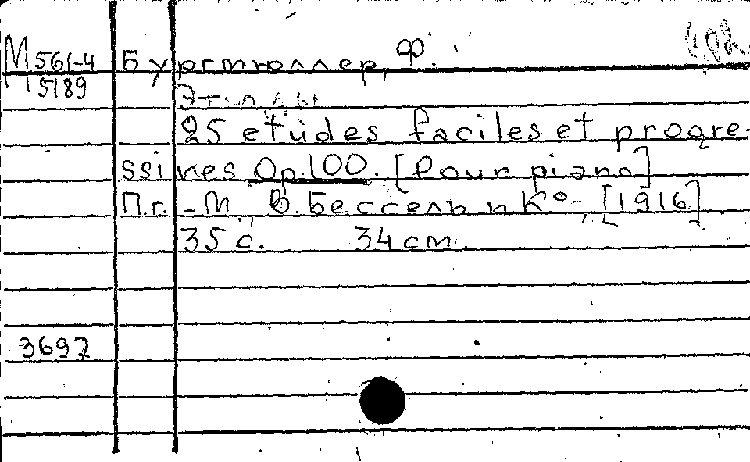 М 561-4 Бургмюллер, Ф.
5189
Этюды
25 etudes faciles et progre-
ssives Op. 100. [Pour piano]
П.г. - М., В. Бессель и К°, [1916]
35 с. 34 см.
3697